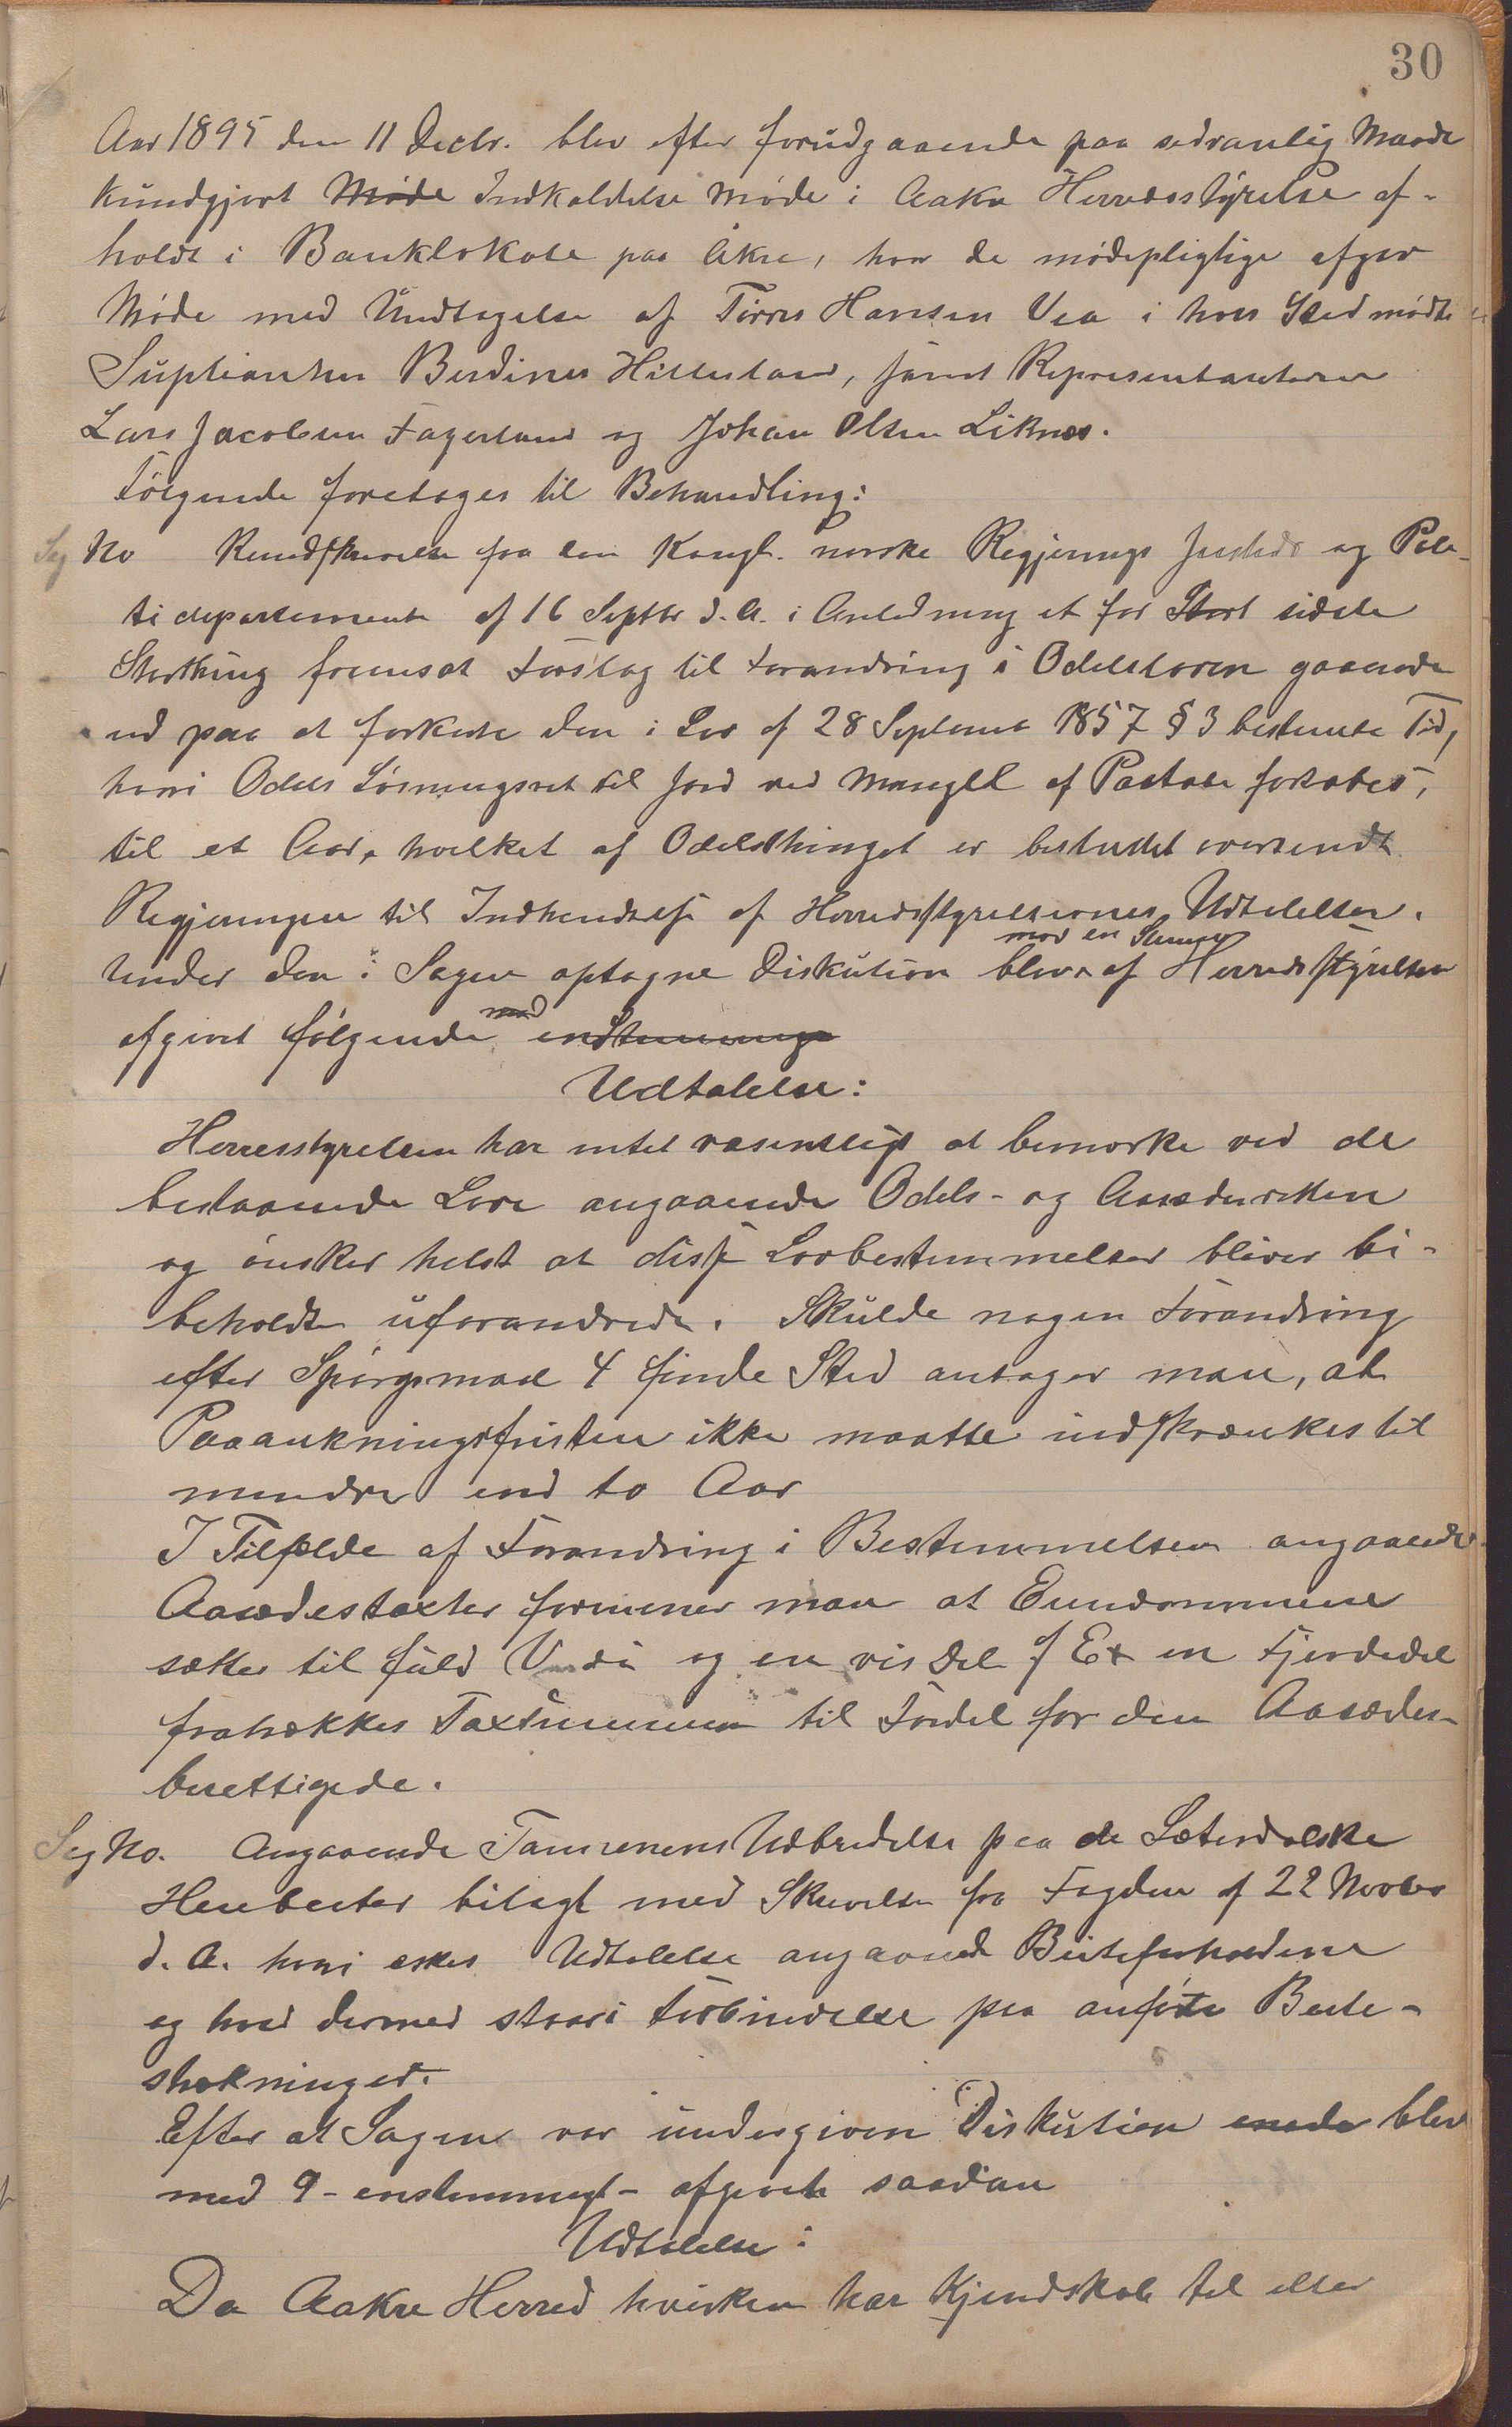 30
Aar 1895 den 11 Decbr. blev efter forudgaaende paa sedvanlig Maade
kundgjort Møde Indkaldelse Møde i Aakre Herredsstyrelse af-
holdt i Banklokale paa Åkre, hvor de mødepligtige afgav
Møde med Undtagelse af Tørres Hansen Vea i hvis Sted mødte
Suplianten Berdines Hillesland, samt Representanterne
Lars Jacobsen Fagerland og Johan Olsen Liknes.
Følgende foretages til Behandling:
Sag No Rundskrivelse fra den Kongl. norske Regjerings Justids og Poli-
tidepartement af 16 Septbr d. A. i Anledning et for Stort sidste
Storthing fremsat Forslag til Forandring i Odelsloven gaaende
ud paa at forkorte den i Lov af 28 September 1857 § 3 bestemte Tid,
hvori Odels Løsningsret til Jord ved Mangel af Paatale fortabes,
til et Aar, hvilket af Odelsthinget er besluttet oversendt
Regjeringen til Indhendtelse af Herredsstyrelsernes Udtalelser.
mod en Stemme
Under den i Sagen optagne Diskution blev af Herredsstyrelsen
mod
afgivet følgende enstemmige
Udtalelse:
Herresstyrelsen har intet væsentligt at bemærke ved de
bestaaende Love angaaende Odels- og Aasædesretten
og ønsker helst at disse Lovbestemmelser bliver bi-
beholdte uforandrede. Skulde nogen Forandring
efter Spørgsmaal 4 finde Sted antager man, at
Paaankningsfristen ikke maatte indskrænkes til
mindre end to Aar
I Tilfælde af Forandring i Bestemmelsen angaaende
Aasædestaxter formener man at Eiendommene
sættes til fuld Værdi og en vis Del f Ex en Fjerdedel
fratrækkes Taxtsummen til Fordel for den Aasædes-
berettigede.
Sag No. Angaaende Tamrenens Udbredelse paa de Sæterdalske
Heiebeiter bilagt med Skrivelse fra Fogden af 22 Novbr
d. A. hvori æskes Udtalelse angaaende Beiteforholdene
og hvad dermed staar i Forbindelse paa anførte Beite-
strækninger.
Efter at Sagen var undergiven Diskution blev
med 9 - enstemmigt - afgivet saadan
Udtalelse:
Da Aakre Herred hverken har Kjendskab til eller